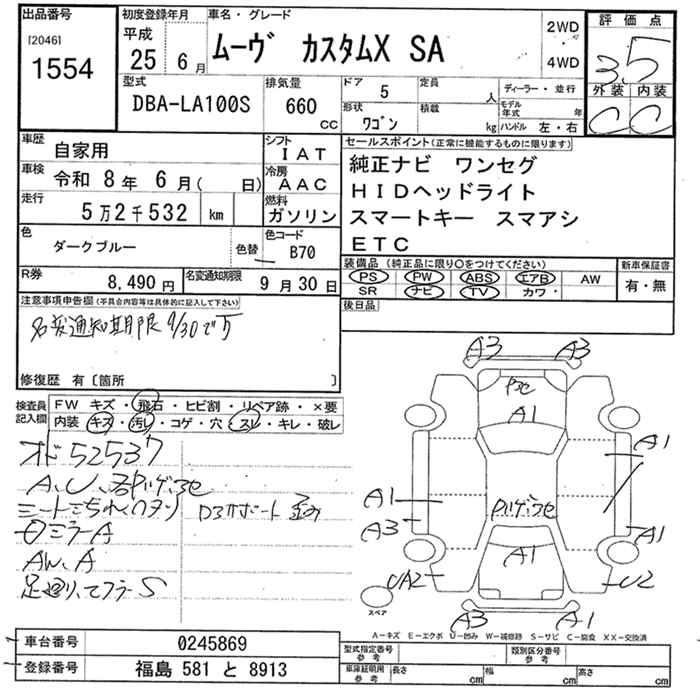 出品番号
[2046]
1554
初度登録年月
平成
25 年 6 月
車名・グレード
ムーヴ カスタムX SA
2WD
4WD
評価点
3.5
外装 内装
C C
型式
DBA-LA100S
排気量
660
CC
ドア 5
形状
ワゴン
定員
人
積載
kg
ディーラー・並行
モデル年式 年
ハンドル 左・右
車歴
自家用
車検
令和 8年 6月( 日)
走行
5万2千532 km
色
ダークブルー
色替
色コード
B70
シフト
IAT
冷房
AAC
燃料
ガソリン
R券
8,490円
名変通知期限
9月30日
セールスポイント(正常に機能するものに限ります)
純正ナビ ワンセグ
HIDヘッドライト
スマートキー スマアシ
ETC
装備品(純正品に限り○をつけてください)
PS PW ABS エアB AW
SR ナビ TV カワ・
新車保証書
有・無
後日品
注意事項申告欄(不具合内容等は具体的に記入して下さい)
名変通知期限 9/30です
修復歴 有〔箇所 〕
検査員記入欄
FW キズ・飛石・ヒビ割・リペア跡・×要
内装 キズ・汚レ・コゲ・穴・スレ・キレ・破レ
オド 52537
シートこぢれ
ミラーA
AW.A
足廻り、マフラーS
A3 A3
A1
A1
A1
A3
A1
A1
UA2
U2
A3 A1
スペア
A−キズ E−エクボ U−凹み W−補修跡 S−サビ C−腐食 XX−交換済
車台番号
0245869
登録番号
福島 581 と 8913
型式指定番号
参考
類別区分番号
参考
車庫証明用
参考
長さ cm
幅 cm
高さ cm